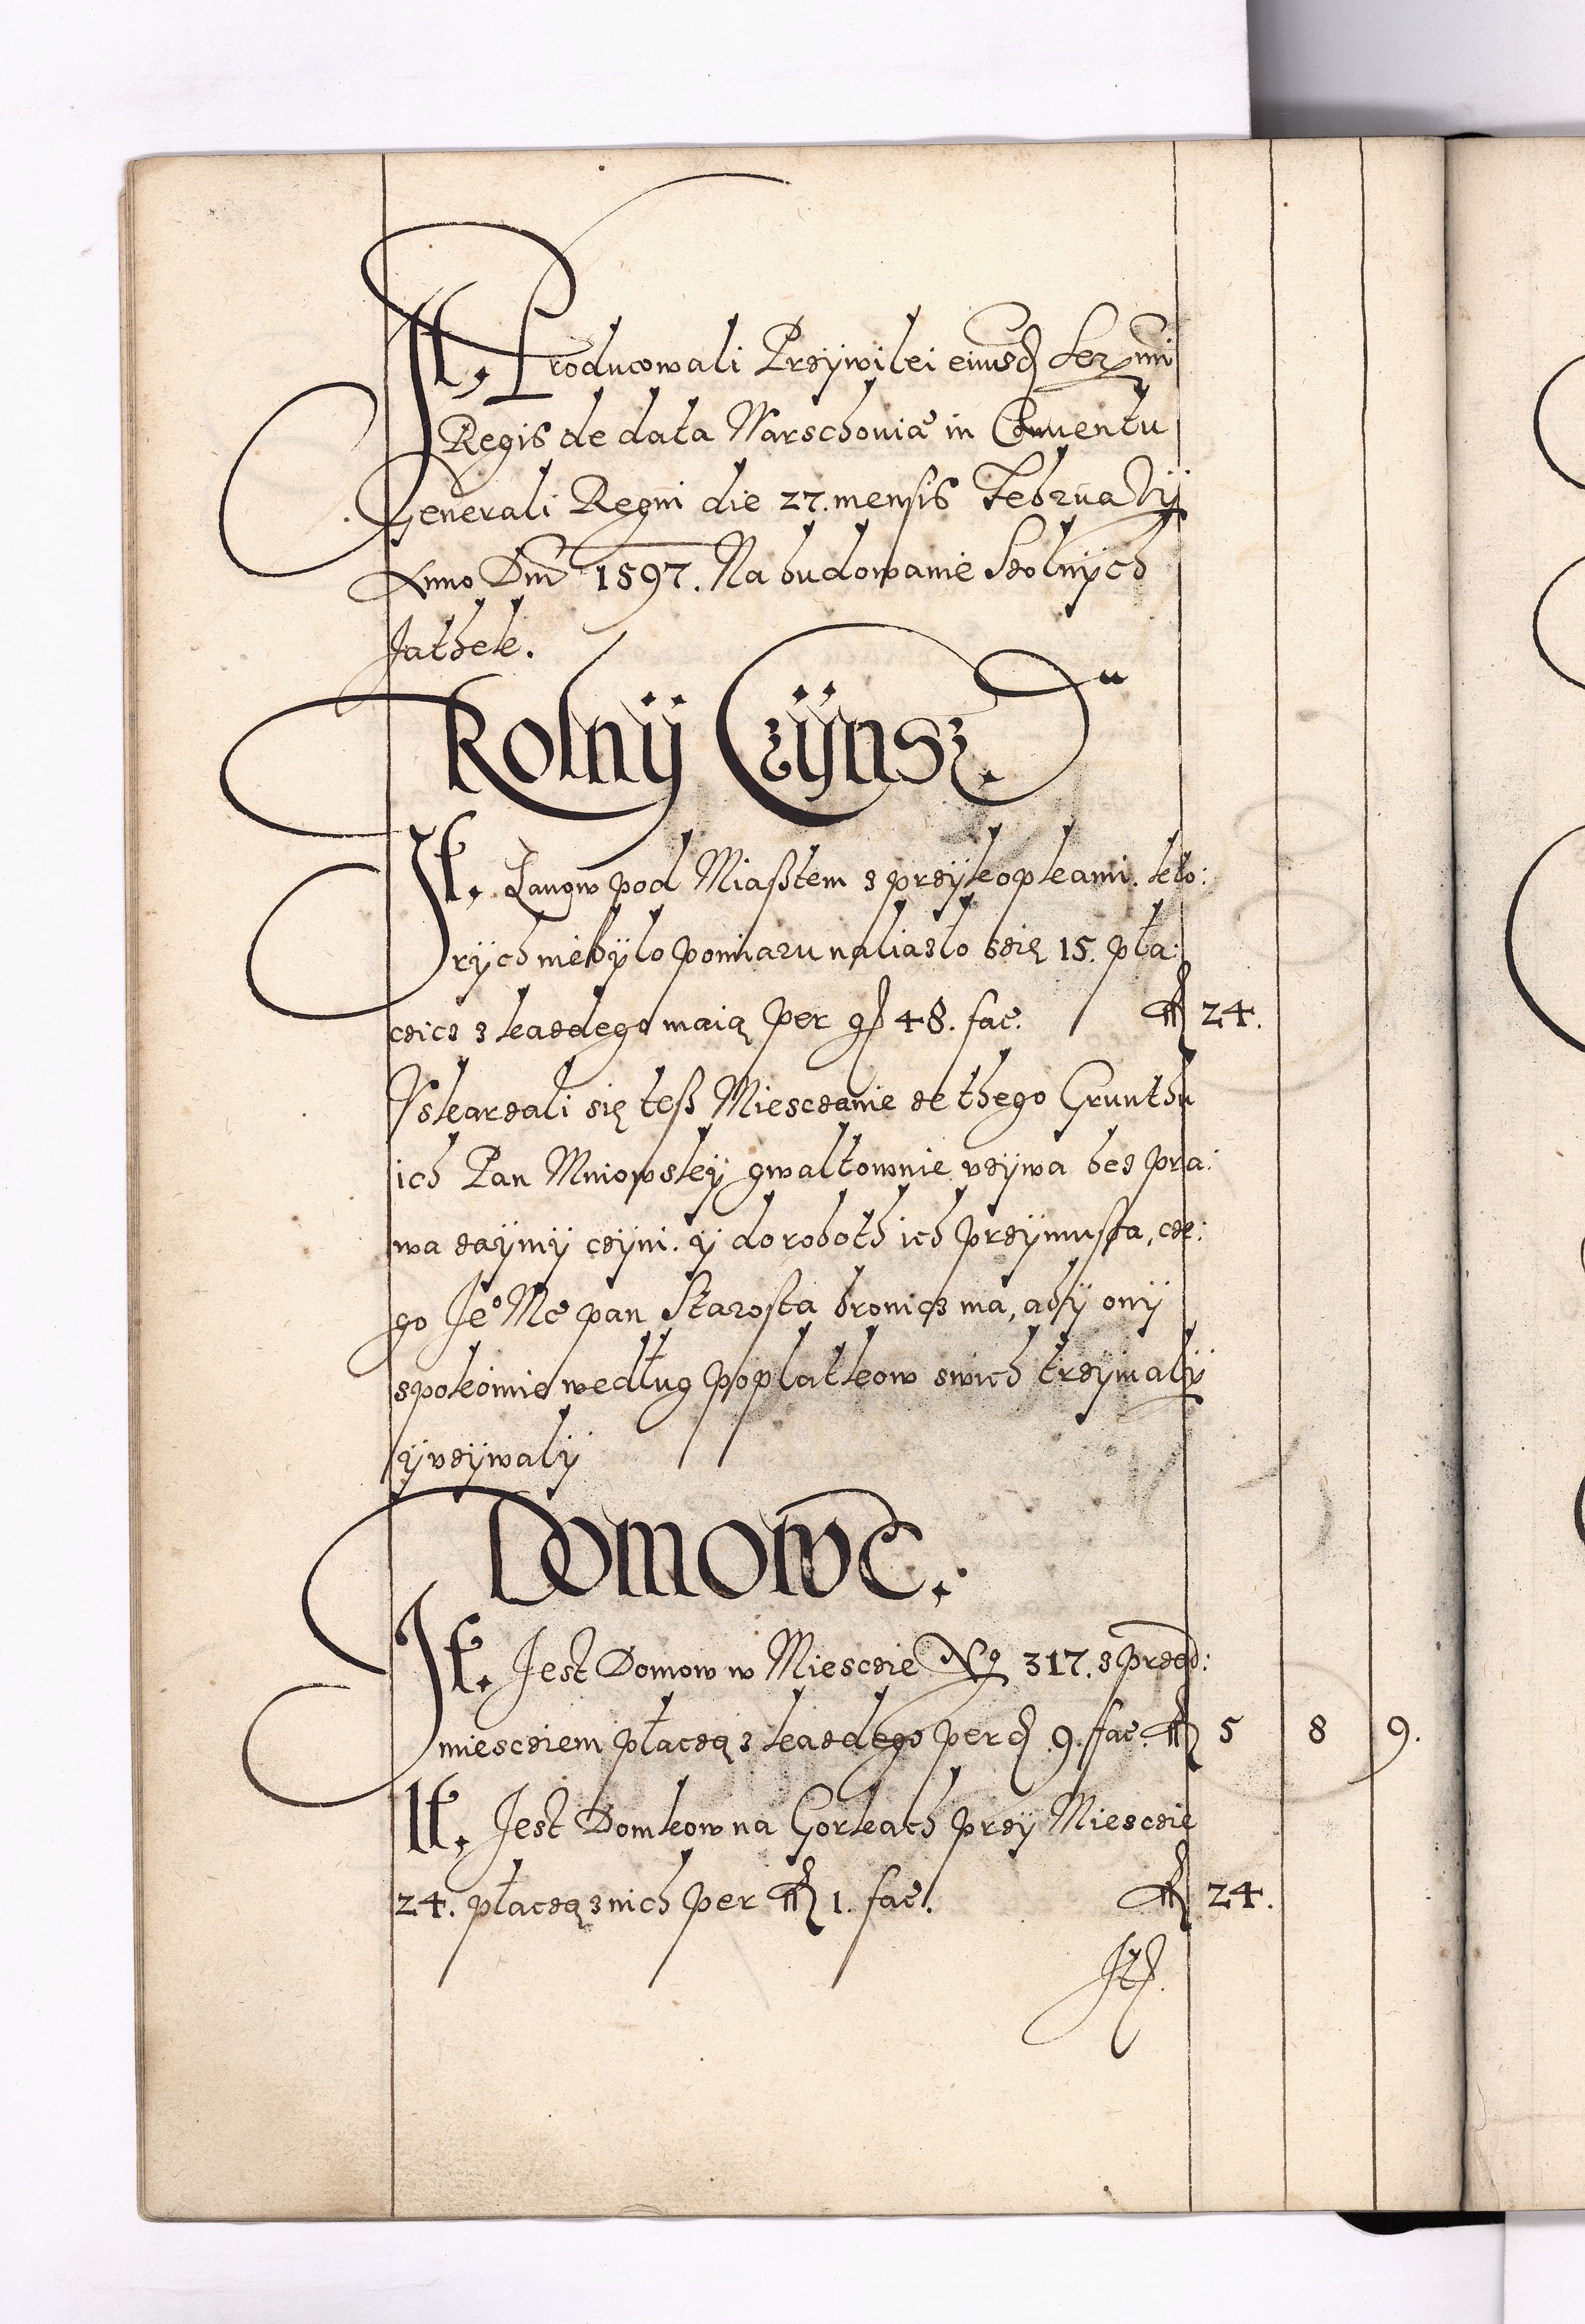 It. Producowali Przÿwilei eiusd Serᵐⁱ
Regis de data Warschouiæ in Conuentu
Generali Regni die 27. mensis Februarÿ
Anno Dni 1597. Na budowanie Solnÿch
Jathek.
Rolnÿ Czÿnsz.
It. Łanow pod Miaßtem z przÿkopkami. kto:
rÿch nie bÿlo pomiaru naliazlo szię 15. pła:
czicz z kazdego maią per gr 48. fac. fl 24.
Vskarzali się teß Miesczanie ze thego Grunthu
ich Pan Mniowskÿ gwałtownie vzÿwa bez pra:
wa zaÿmÿ czÿni. ÿ do roboth ich przÿmusza, cze:
go Jeº Mc pan Starosta bronicz ma, abÿ onÿ
spokoinie według popłatkow swich trzÿmalÿ
ÿ vzÿwalÿ
Domowe.
It. Jest Domow w Miesczie Nº 317. z przed:
miescziem płaczą z kazdego per d 9. fac. fl 5 8 9.
It. Jest Domkow na Gorkach przÿ Miesczie
24. płaczą z nich per fl 1. fac. fl 24.
It.